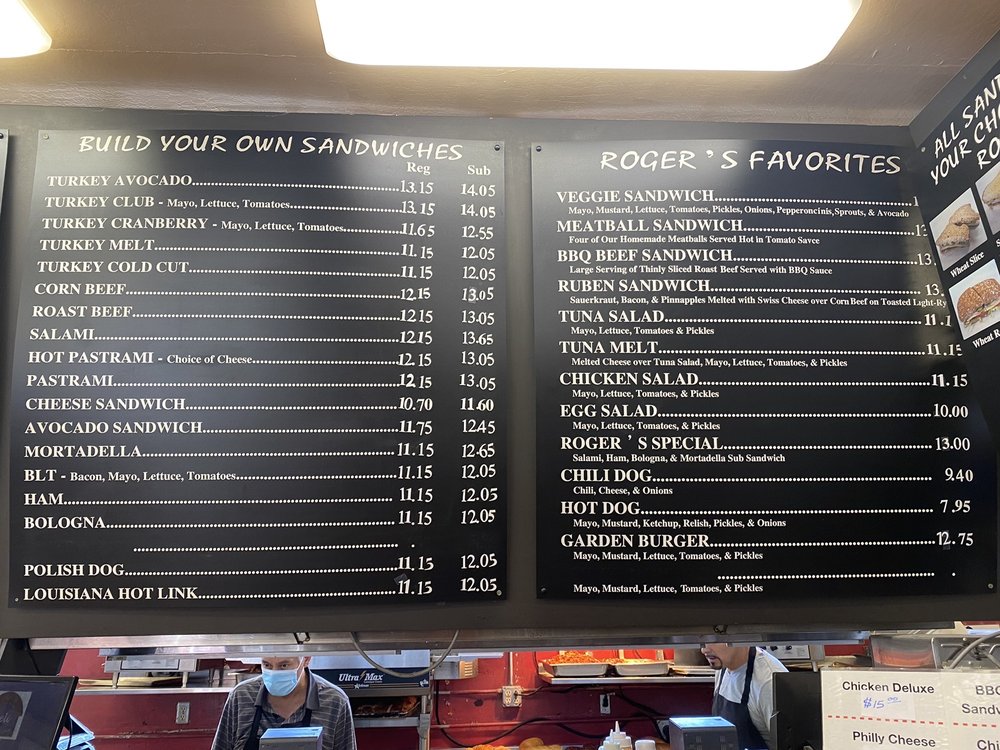 BUILD YOUR OWN SANDWICHES
Reg Sub
TURKEY AVOCADO 13.15 14.05
TURKEY CLUB - Mayo, Lettuce, Tomatoes 13.15 14.05
TURKEY CRANBERRY - Mayo, Lettuce, Tomatoes 11.65 12.55
TURKEY MELT 11.15 12.05
TURKEY COLD CUT 11.15 12.05
CORN BEEF 12.15 13.05
ROAST BEEF 12.15 13.05
SALAMI 12.15 13.65
HOT PASTRAMI - Choice of Cheese 12.15 13.05
PASTRAMI 12.15 13.05
CHEESE SANDWICH 10.70 11.60
AVOCADO SANDWICH 11.75 12.45
MORTADELLA 11.15 12.65
BLT - Bacon, Mayo, Lettuce, Tomatoes 11.15 12.05
HAM 11.15 12.05
BOLOGNA 11.15 12.05
POLISH DOG 11.15 12.05
LOUISIANA HOT LINK 11.15 12.05
ROGER'S FAVORITES
VEGGIE SANDWICH
Mayo, Mustard, Lettuce, Tomatoes, Pickles, Onions, Pepperoncinis,Sprouts, & Avocado
MEATBALL SANDWICH
Four of Our Homemade Meatballs Served Hot in Tomato Savce
BBQ BEEF SANDWICH 13.
Large Serving of Thinly Sliced Roast Beef Served with BBQ Sauce
RUBEN SANDWICH 13.
Sauerkraut, Bacon, & Pinnapples Melted with Swiss Cheese over Corn Beef on Toasted Light-Ry
TUNA SALAD 11.1
Mayo, Lettuce, Tomatoes & Pickles
TUNA MELT 11.15
Melted Cheese over Tuna Salad, Mayo, Lettuce, Tomatoes, & Pickles
CHICKEN SALAD 11.15
Mayo, Lettuce, Tomatoes, & Pickles
EGG SALAD 10.00
Mayo, Lettuce, Tomatoes, & Pickles
ROGER'S SPECIAL 13.00
Salami, Ham, Bologna, & Mortadella Sub Sandwich
CHILI DOG 9.40
Chili, Cheese, & Onions
HOT DOG 7.95
Mayo, Mustard, Ketchup, Relish, Pickles, & Onions
GARDEN BURGER 12.75
Mayo, Mustard, Lettuce, Tomatoes, & Pickles
Mayo, Mustard, Lettuce, Tomatoes, & Pickles
ALL SAND
YOUR CH
RO
Wheat Slice
Wheat R
Ultra Max
Chicken Deluxe
$15.00
Philly Cheese
BBQ
Sandw